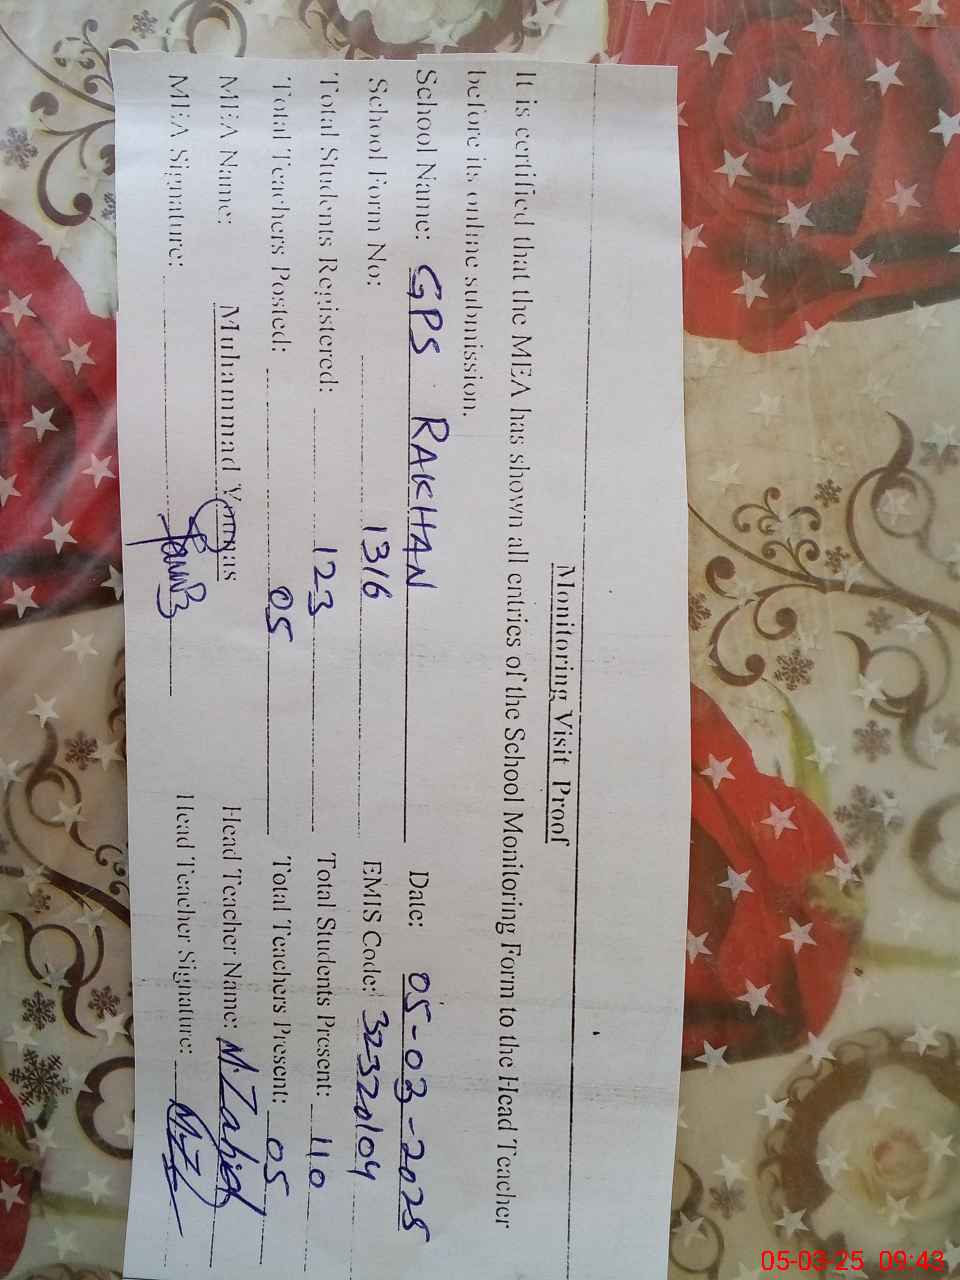 Monitoring Visit Proof
It is certified that the MEA has shown all entries of the School Monitoring Form to the Head Teacher
before its online submission.
School Name: GPS RAKHAN Date: 05-03-2025
School Form No: 1316 EMIS Code: 32320104
Total Students Registered: 123 Total Students Present: 110
Total Teachers Posted: 05 Total Teachers Present: 05
MEA Name: Muhammad Younas Head Teacher Name: M. Zahid
MEA Signature: Head Teacher Signature:
05-03-25 09:43